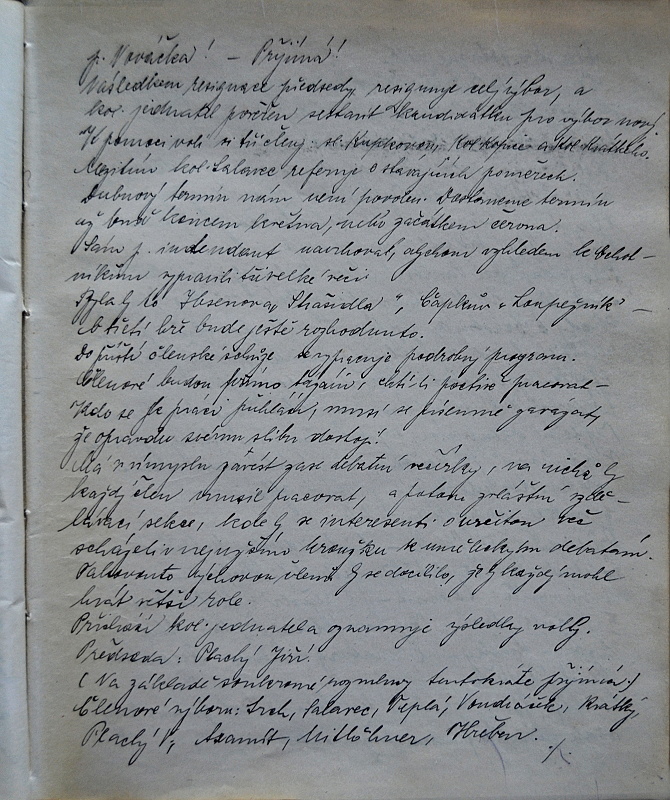 p. Nováčka! – Přijímá!
Následkem resignace předsedy, resignuje celý výbor, a
kol. jednatel pověřen sestavit kandidátku pro výbor nový.
K pomoci volí si tři členy: sl. Kupkovou, kol. Kopice a kol. Krátkého.
Mezitím kol. Salavec referuje o stávajících poměrech.
Dubnový termín nám není povolen. Dostaneme termín
až buď koncem května, nebo začátkem června.
Sám p. intendant navrhoval, abychom vzhledem k Ochot-
níkům vypravili tři velké věci.
Byla by to Ibsenova „Strašidla", Čapkův „Loupežník" –
O třetí hře bude ještě rozhodnuto.
Do příští členské schůze se vypracuje podrobný program.
Členové budou přímo tázáni, chtějí-li poctivě pracovat –
Kdo se k práci přihlásí, musí se písemně zavázat,
že opravdu svému slibu dostojí!
Má v úmyslu zavést zase debatní večírky, na nichž by
každý člen musil pracovat, a potom zvláštní vzdě-
lávací sekce, kde by se interesenti o určitou věc
scházeli v nejužším kroužku k uměleckým debatám.
Takovouto výchovou členů by se docílilo, že by každý mohl
hrát větší role.
Přichází kol. jednatel a oznamuje výsledky volby.
Předseda: Plachý Jiří.
(Na základě soukromé rozmluvy tentokráte přijímá.)
Členové výboru: Srch, Salavec, Teplá, Vondráček, Krátký,
Plachý V., Axamit, Mitlöhner, Hřeben. ./.